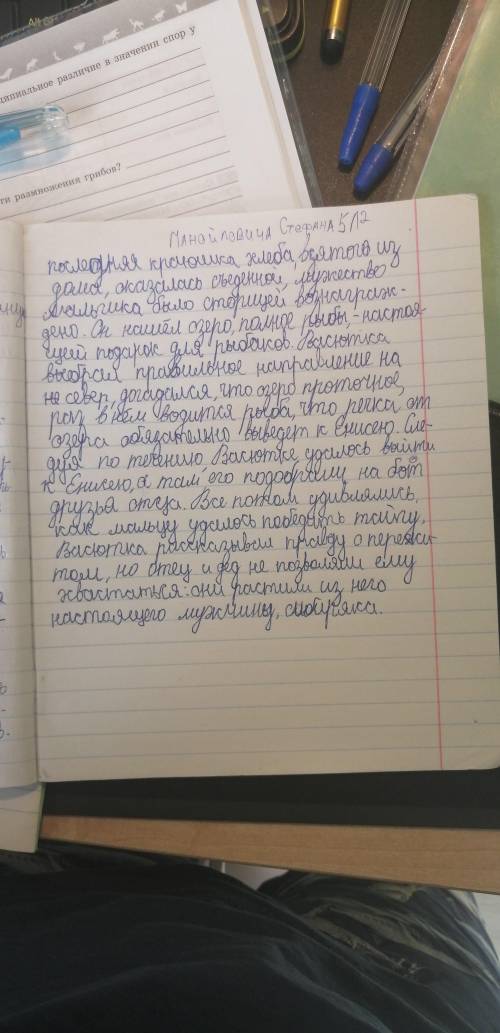 Alt Gr
ципиальное различие в значении спор у
ти размножения грибов?
Манойловича Стефана 5Л2
последняя краюшка хлеба, взятого из
дома, оказалась съеденной, мужество
мальчика было сторицей вознаграж-
дено. Он нашёл озеро, полное рыбы, - настоя-
щий подарок для рыбаков. Васютка
выбрал правильное направление на
на север, догадался, что озеро проточное,
раз в нём водится рыба, что речка от
озера обязательно выведет к Енисею. Сле-
дуя по течению Васютке удалось выйти
к Енисею, а там его подобрали на бот
друзья отца. Все потом удивлялись,
как мальцу удалось победить тайгу,
Васютка рассказывал правду о пережи-
том, но отец и дед не позволяли ему
хвастаться: они растили из него
настоящего мужчину, сибиряка.